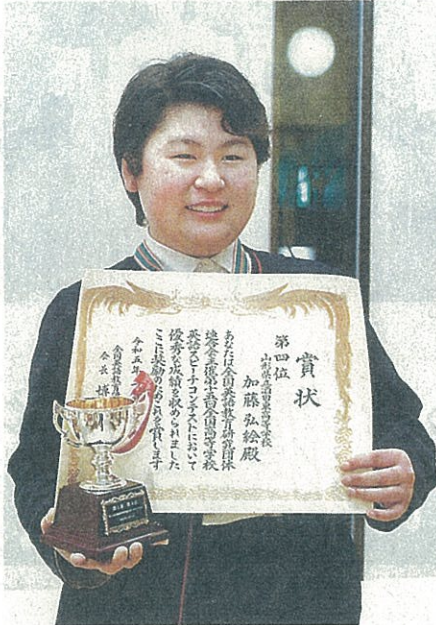 賞状
第四位
加藤弘絵殿
あなたは全国英語教育研究団体
連合会主催第十五回全国高等学校
英語スピーチコンテストにおいて
優秀な成績を収められました
ここに奨励のためこれを賞します
令和五年
全国英語教育
会長